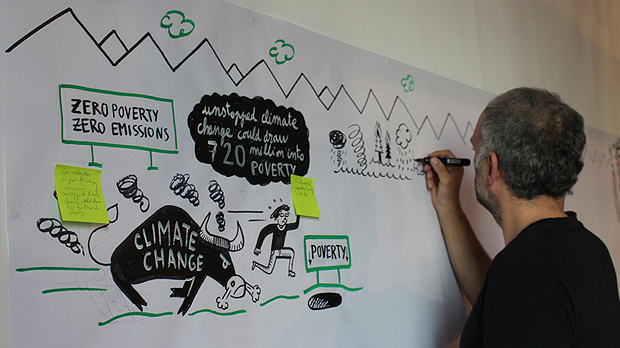 ZERO POVERTY
ZERO EMISSIONS
unstopped climate
change could draw
720
million into
POVERTY
CLIMATE
CHANGE
POVERTY